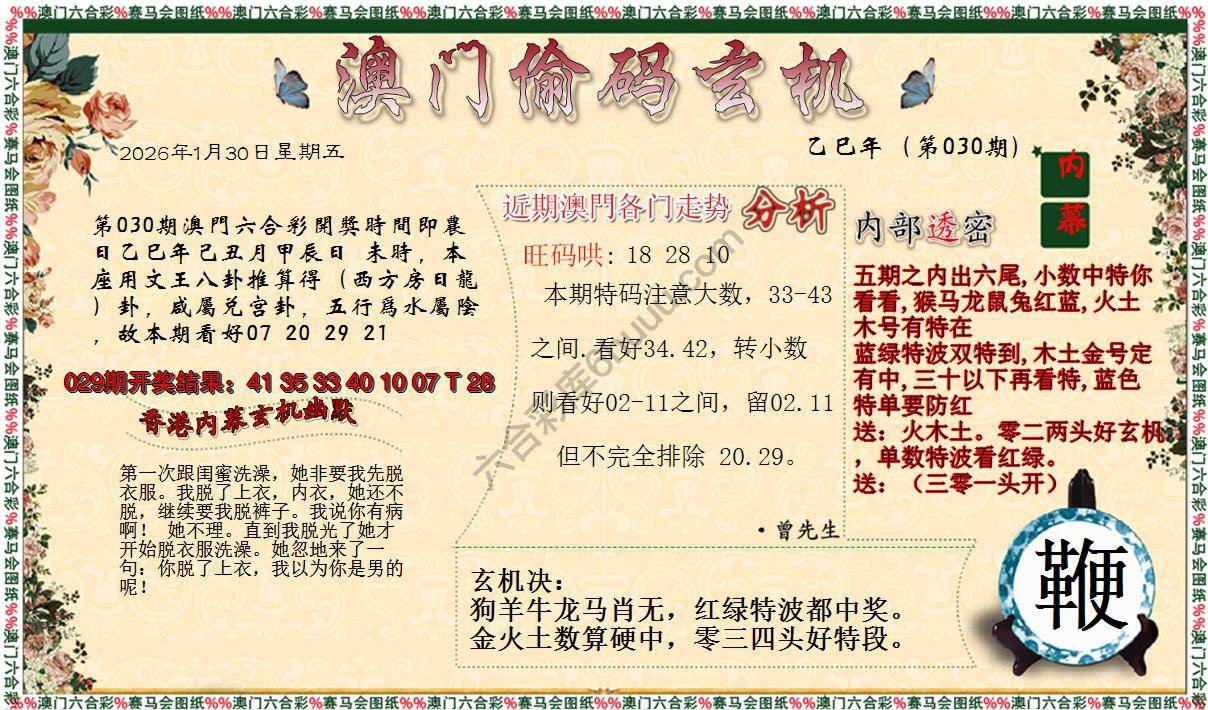 %%澳门六合彩%赛马会图纸%%澳门六合彩%赛马会图纸%%澳门六合彩%赛马会图纸%%澳门六合彩%赛马会图纸%%澳门六合彩%赛马会图纸%%澳门六合彩%赛马会图纸%%
澳门偷码玄机
2026年1月30日星期五
乙巳年（第030期）
内幕
第030期澳門六合彩開獎時間即農
日乙巳年己丑月甲辰日 未時，本
座用文王八卦推算得（西方房日龍
）卦，咸屬兑宫卦，五行爲水屬陰
，故本期看好07 20 29 21
029期开奖结果：41 35 33 40 10 07 T 28
香港内幕玄机幽默
第一次跟闺蜜洗澡，她非要我先脱
衣服。我脱了上衣，内衣，她还不
脱，继续要我脱裤子。我说你有病
啊！ 她不理。直到我脱光了她才
开始脱衣服洗澡。她忽地来了一
句：你脱了上衣，我以为你是男的
呢！
近期澳門各门走势 分析
旺码哄: 18 28 10
本期特码注意大数，33-43
之间.看好34.42，转小数
则看好02-11之间，留02.11
但不完全排除 20.29。
·曾先生
内部透密
五期之内出六尾,小数中特你
看看,猴马龙鼠兔红蓝,火土
木号有特在
蓝绿特波双特到,木土金号定
有中,三十以下再看特,蓝色
特单要防红
送：火木土。零二两头好玄机
，单数特波看红绿。
送：（三零一头开）
玄机决：
狗羊牛龙马肖无，红绿特波都中奖。
金火土数算硬中，零三四头好特段。
鞭